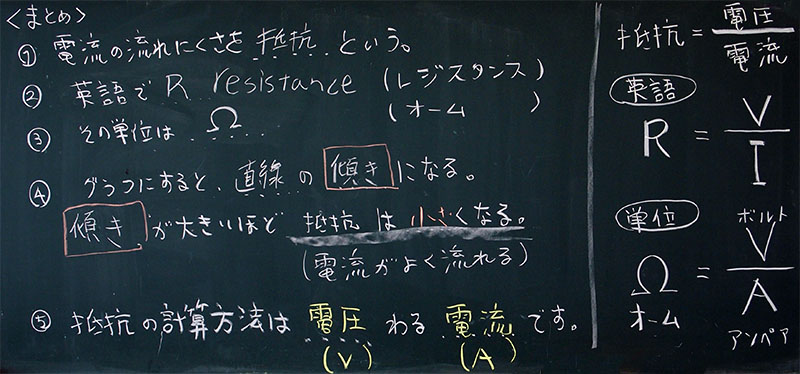 <まとめ>
① 電流の流れにくさを 抵抗 という。
② 英語で R resistance (レジスタンス)
③ その単位は Ω (オーム )
④ グラフにすると、直線 の 傾き になる。
傾き が大きいほど 抵抗 は 小さくなる。
(電流がよく流れる)
⑤ 抵抗の計算方法は 電圧 わる 電流 です。
(V) (A)
抵抗 = 電圧
電流
英語
R = V
I
単位
ボルト
Ω = V
A
オーム
アンペア